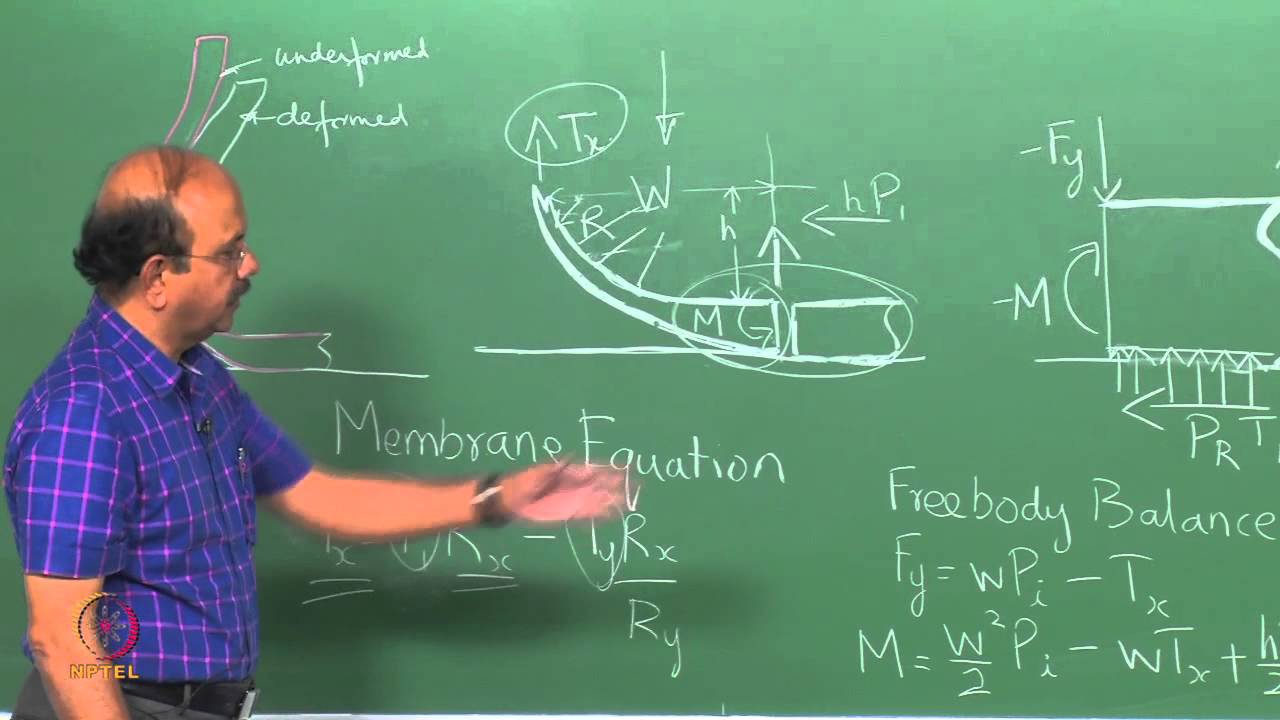 undeformed
deformed
Tx
W
R
h
hP1
M
-Fy
-M
PR
Membrane Equation
Tx = Rx - TyRx
Ry
Freebody Balance
Fy = wPi - Tx
M = w²/2 Pi - wTx + h²/2
NPTEL